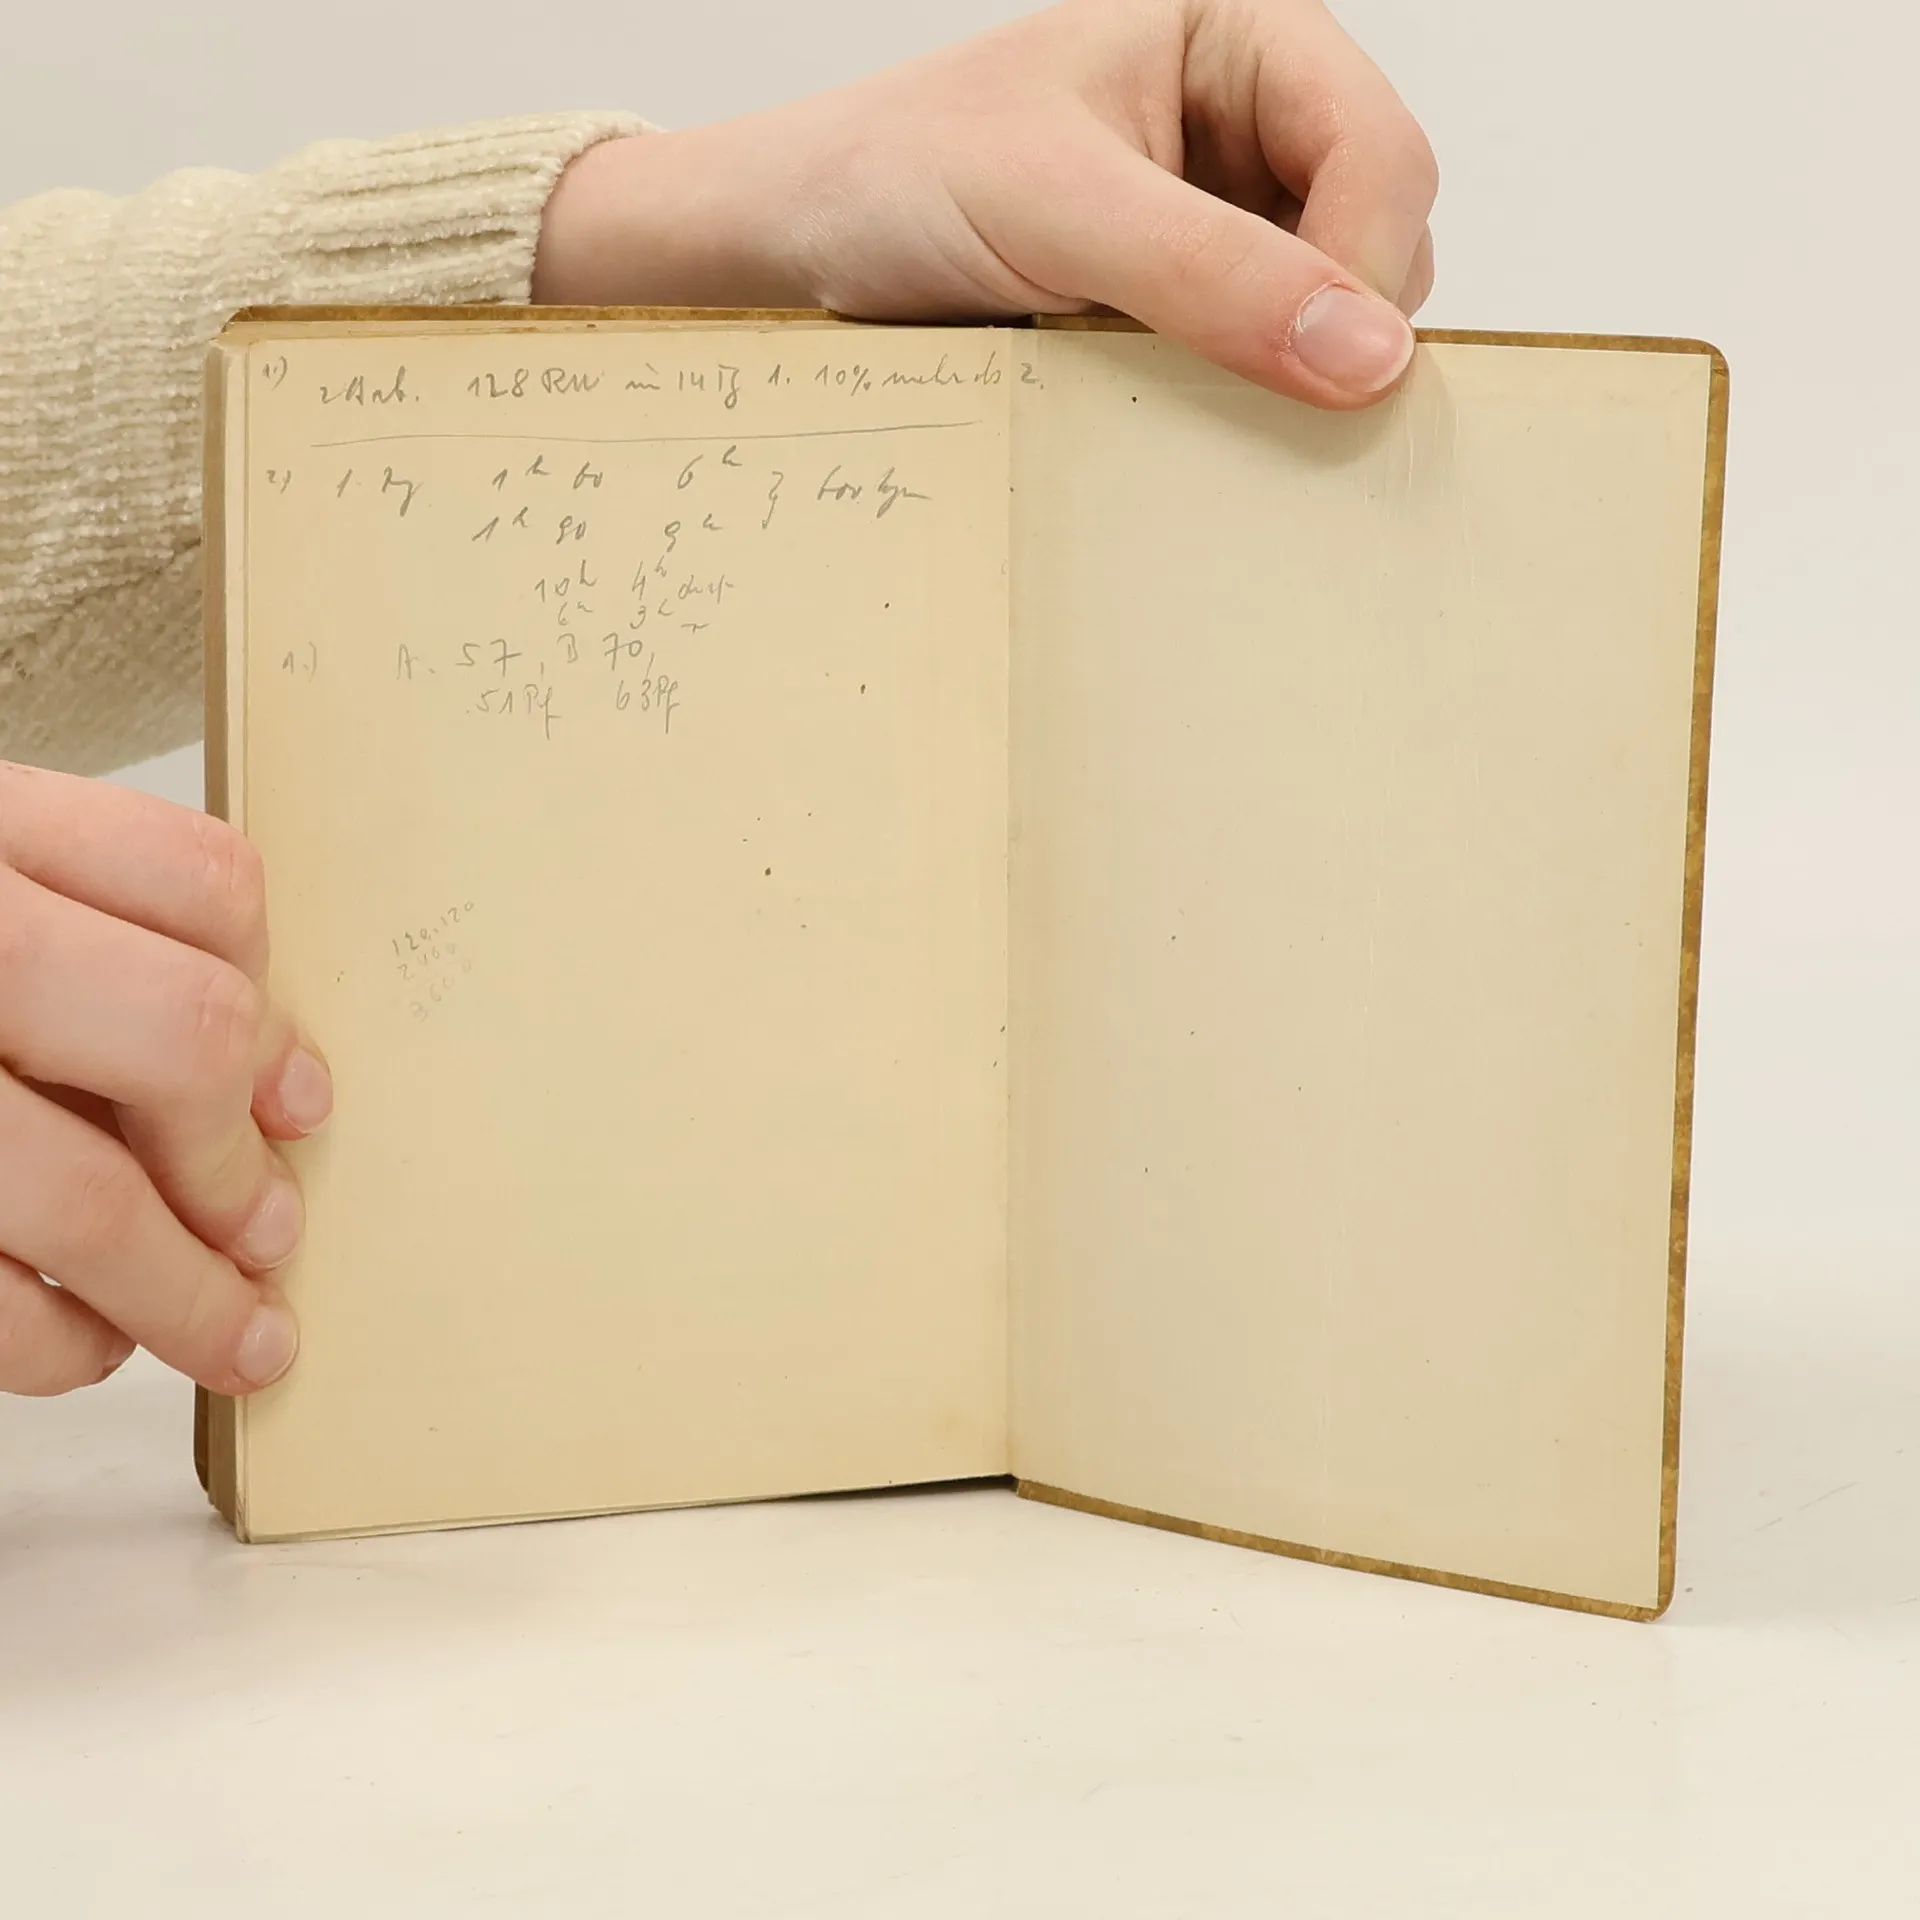 1.) 2 Arb. 128 RM in 14 Tg 1. 10% mehr als 2.
2) 1. Zug 1h 60 6h } 600 kgm
1h 90 9h
10h 4h
6h 3h
1.) A. 57, B 70,
51 Pf 63 Pf
120.120
2400
3600